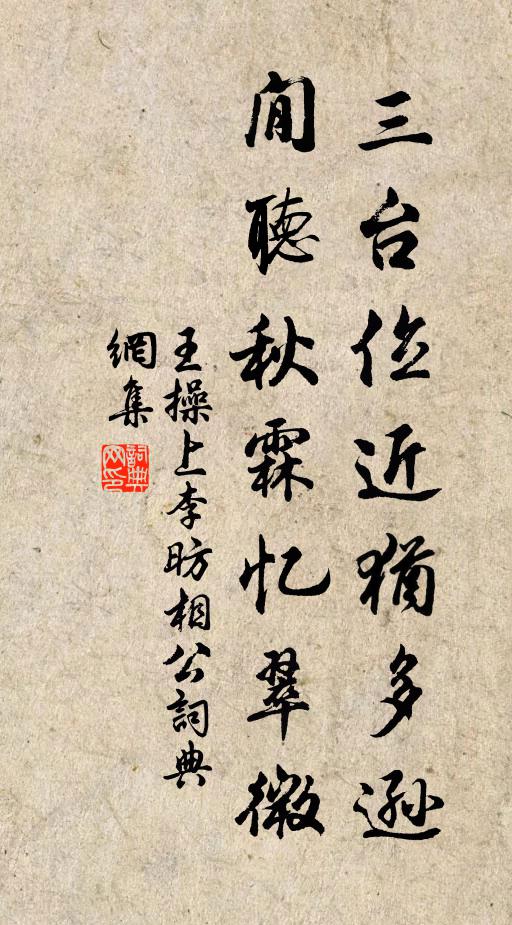 三台位近猶多遜
閒聽秋霖忆翠微
王操上李昉相公詞典
網集
詞典
网印